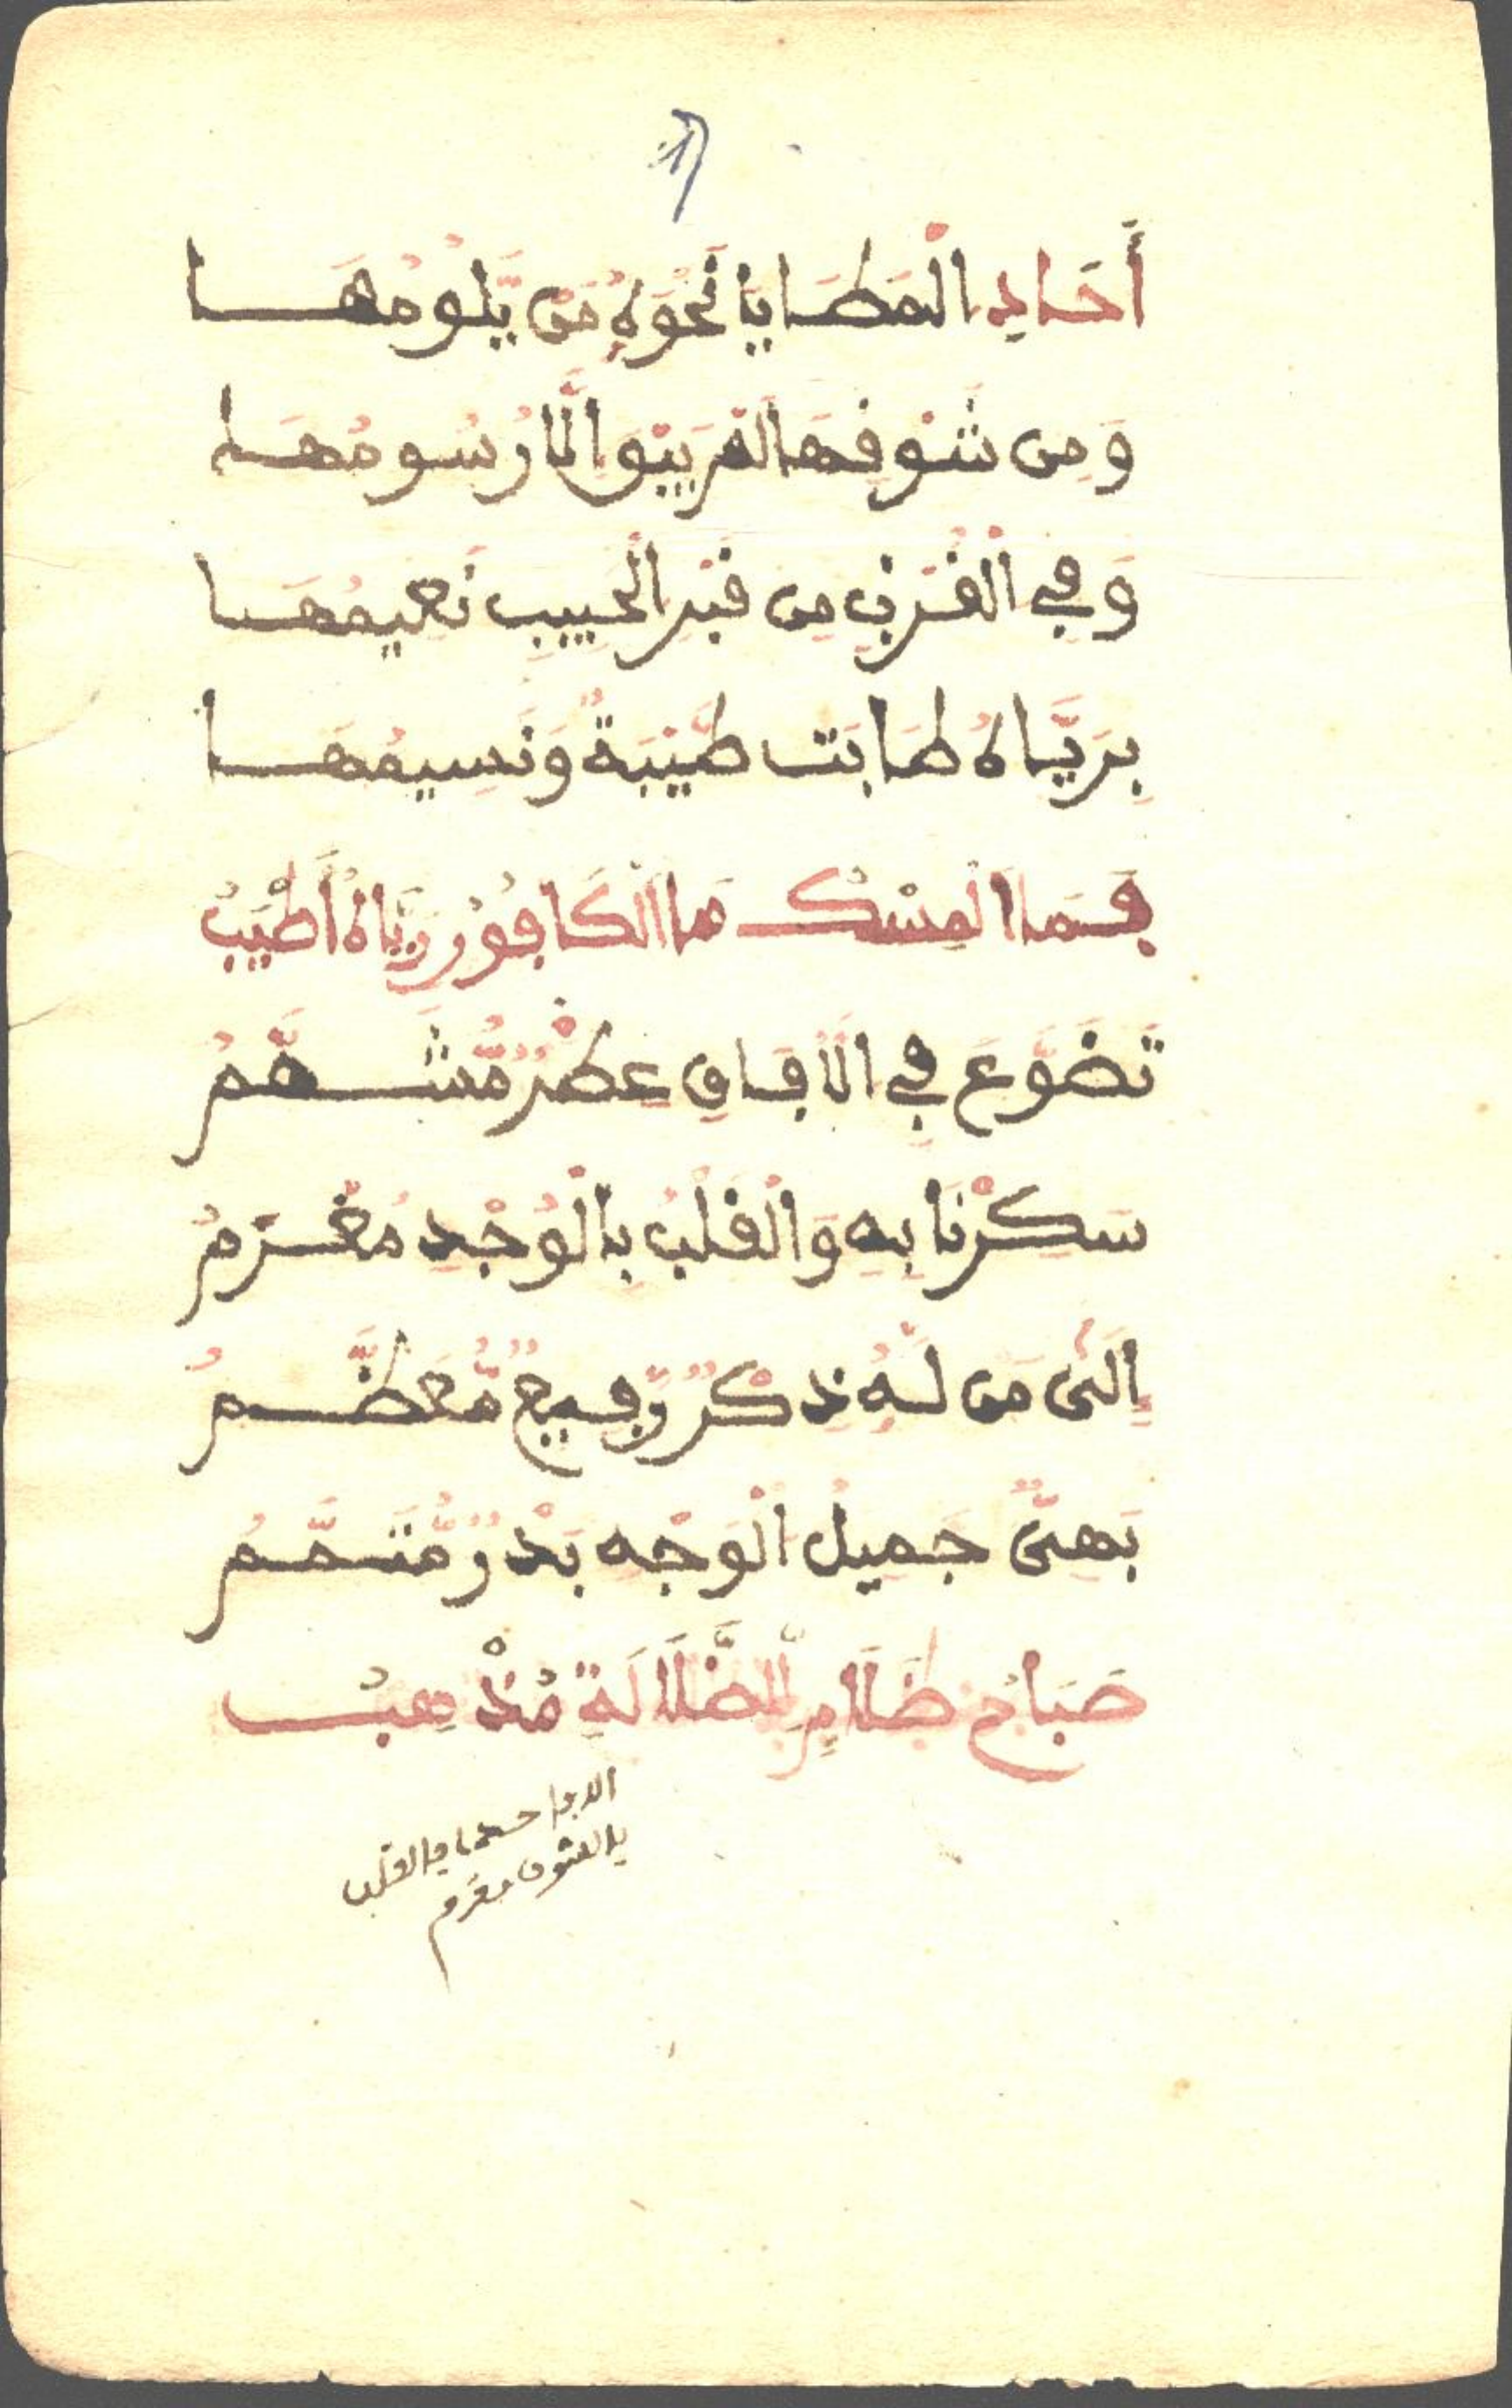 أَحَادِي الْمَطَايَا نَحْوَهُ مَن يَّلُومُهَا
وَمِن شَوْقِهَا لَمْ يَبْقَ إِلَّا رُسُومُهَا
وَفِي الْقُرْبِ مِن قَبْرِ الْحَبِيبِ نَعِيمُهَا
بِرَيَّاهُ طَابَت طَيْبَةٌ وَنَسِيمُهَا
فَمَا الْمِسْكُ مَا الْكَافُورُ رَيَّاهُ أَطْيَبُ
تَضَوَّعَ فِي الْآفَاقِ عِطْرٌ مُّشَمَّمُ
سَكِرْنَا بِهِ وَالْقَلْبُ بِالْوَجْدِ مُغْرَمُ
إِلَى مَن لَّهُ ذِكْرٌ رَّفِيعٌ مُّعَظَّمُ
بَهِيٌّ جَمِيلُ الْوَجْهِ بَدْرٌ مُّتَمَّمُ
صَبَاحٌ ظَلَامٍ لِلضَّلَالَةِ مُذْهِبُ
والقلب
بالشوق مغرم